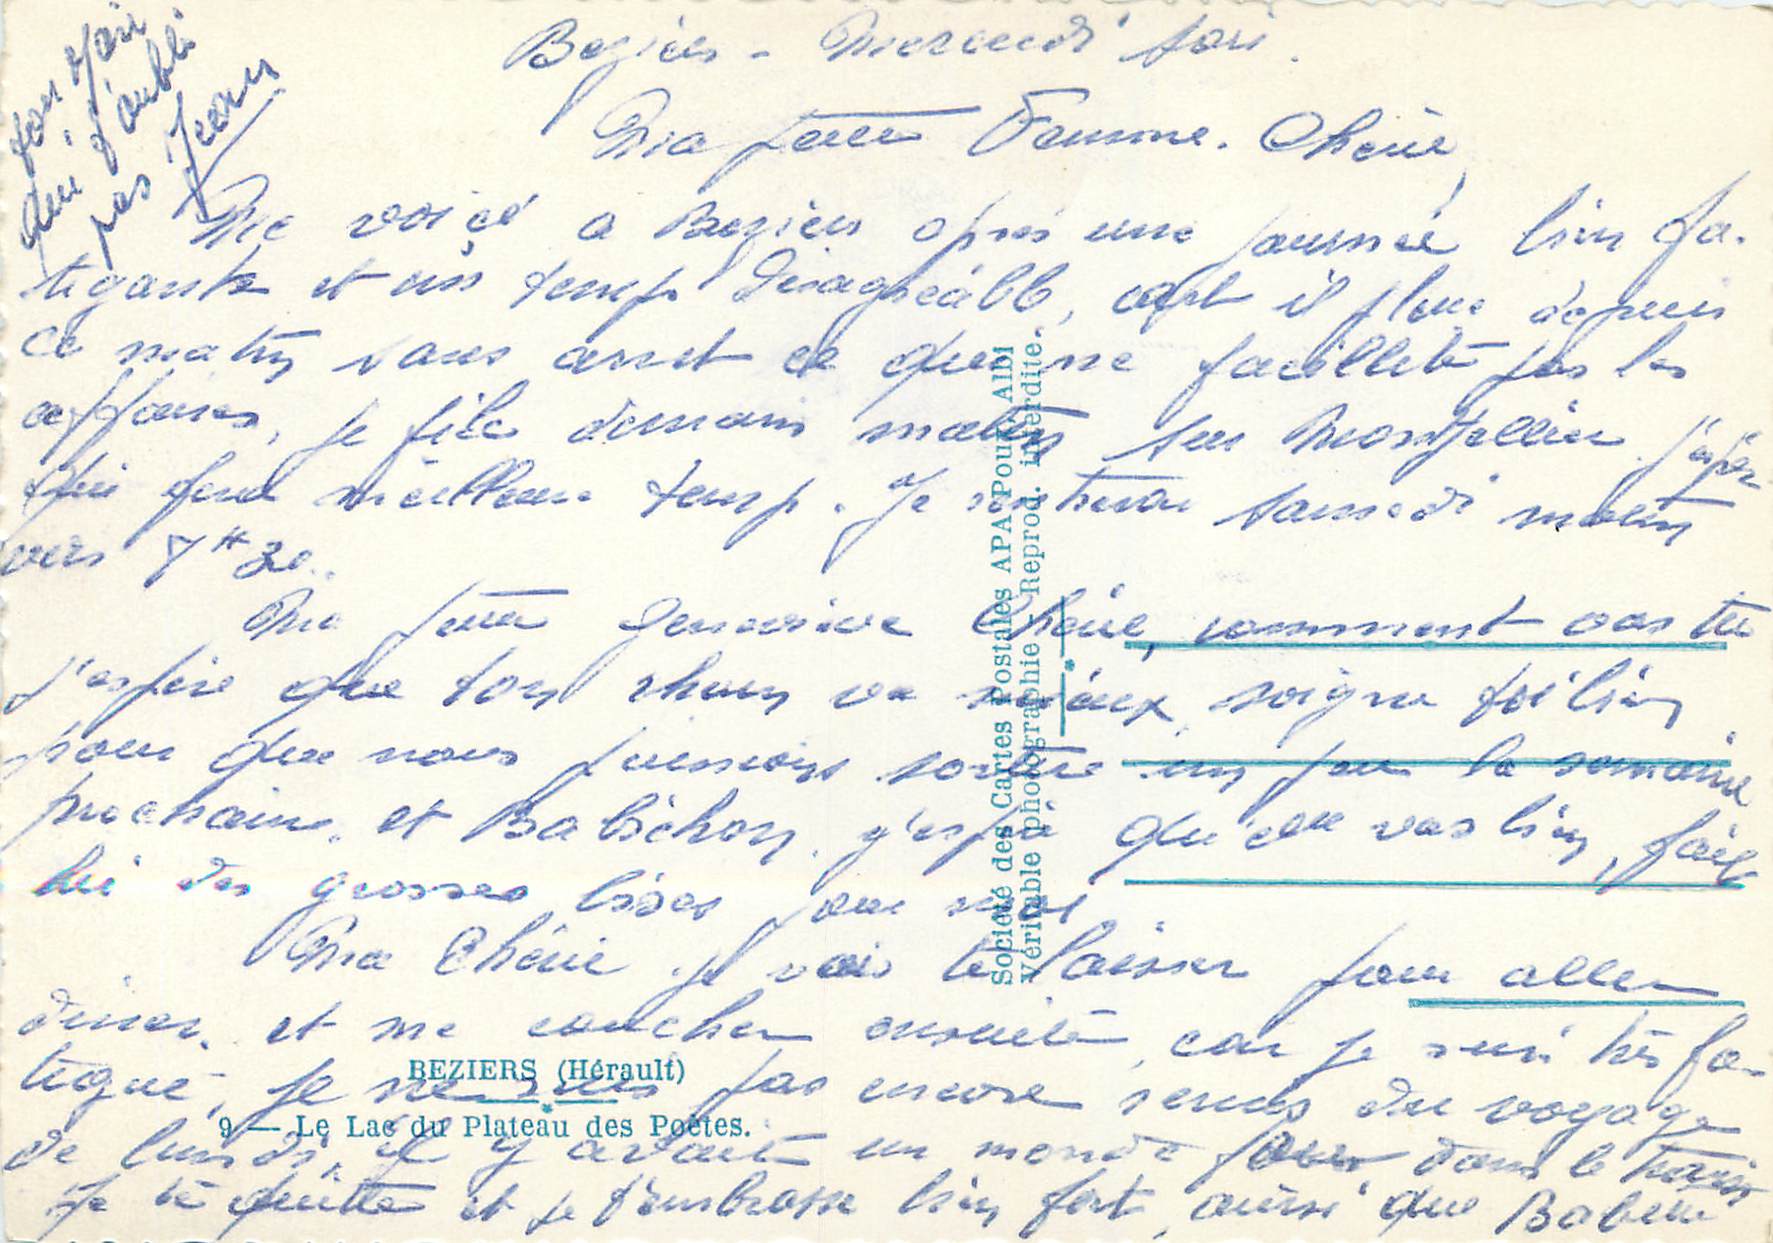 Beziers - Mercredi soir.
Ma petite Femme Cherie,
Me voiçi a Beziers apres une journée bien fa-
tigante et un temps désagréable, cart il pleue depuis
ce matin sans arret ce qui ne facillete pas les
affaires, je file demain matin sur Montpellier j'espère
qu'il fera meilleur temps. Je rentrerai samedi matin
vers 7H30.
Ma petite Genevieve Cherie, comment vas tu
j'espère que ton rhum va mieux, soigne toi bien
pour que nous puissions sortire un peu la semaine
prochaine, et Babichon, j'espère qu'elle vas bien, fait
lui des grosses bises pour moi
Ma Cherie je vais te laisser pour aller
diner, et me coucher ensuite, car je suis très fa-
tigué, je ne suis pas encore remis du voyage
de lundi, il y avait un monde fou dans le train
Je te quitte et je t'embrasse bien fort, ainsi que
ton Mari
qui t'oubli
pas Jean
Société des Cartes Postales APA POUX Albi
Véritable photographie - Reprod. interdite.
BEZIERS (Hérault)
9 — Le Lac du Plateau des Poètes.